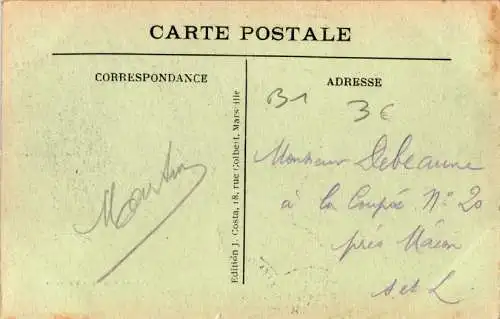 CARTE POSTALE
CORRESPONDANCE
Martin
Edition J. Costa, 18, rue Colbert, Marseille
ADRESSE
B1
3€
Monsieur Debeaune
à la Coupée N° 20
près Mâcon
S. et L.